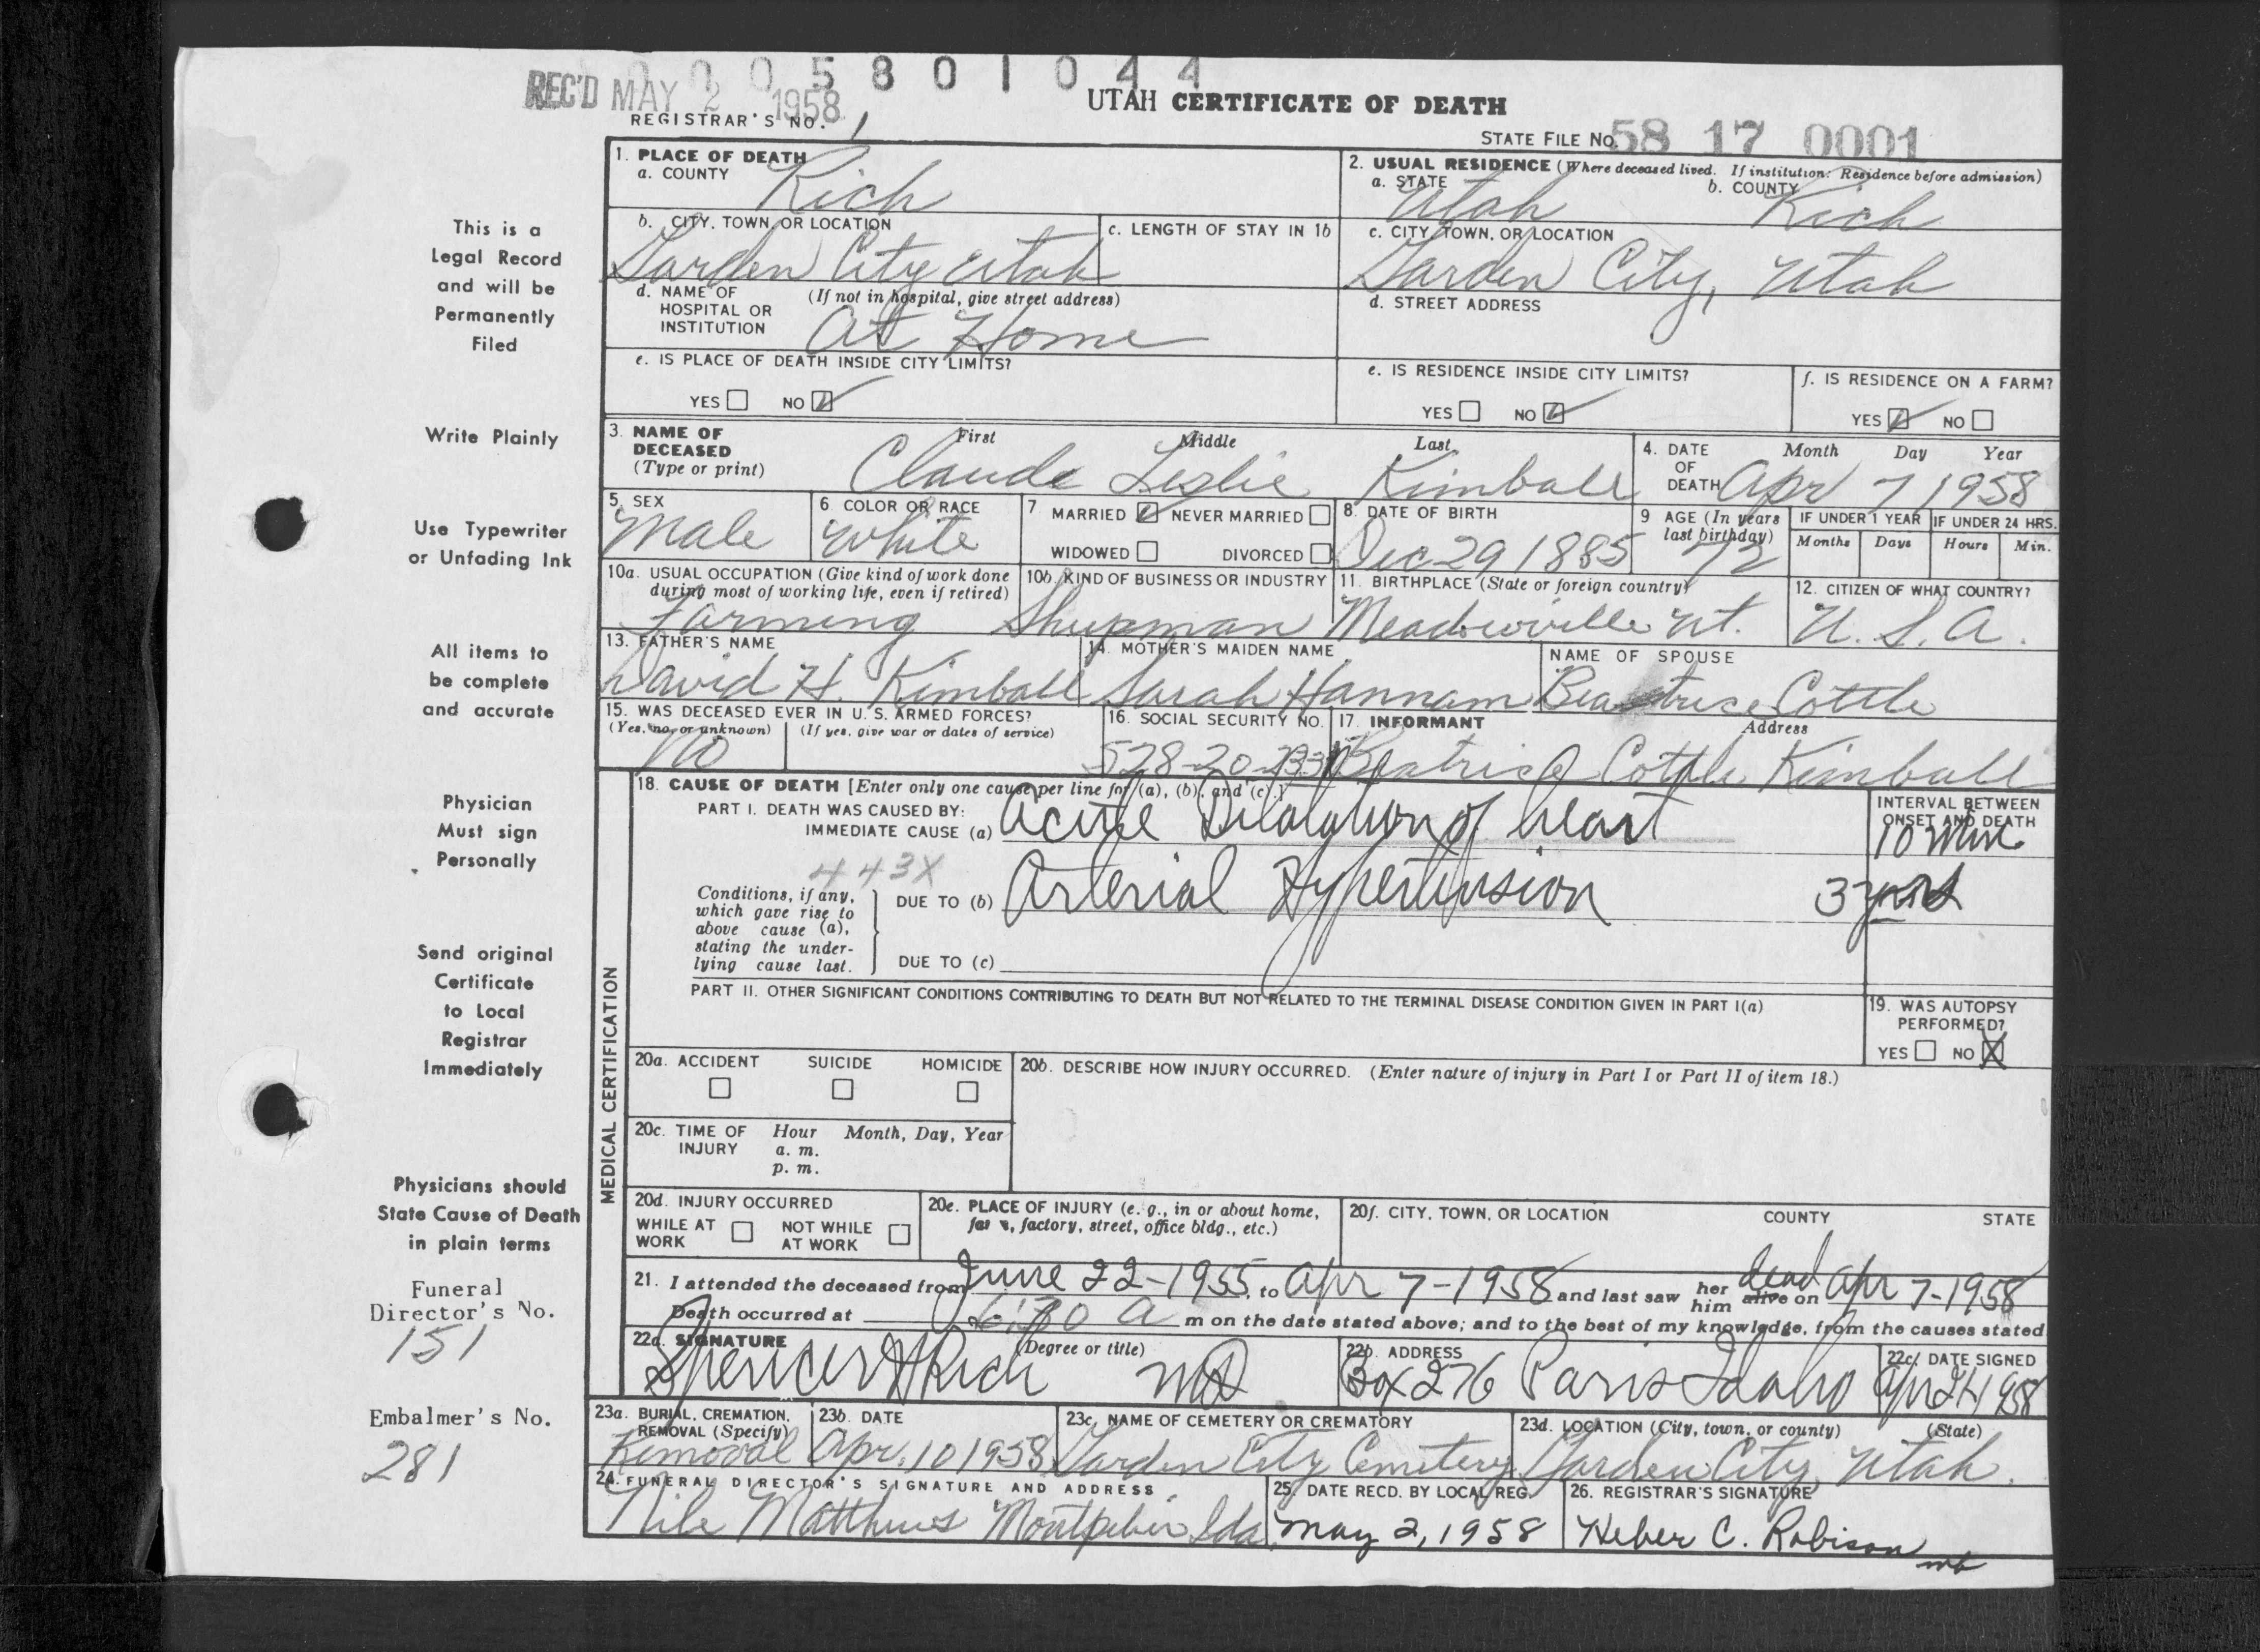 0 0 0 5 8 0 1 0 4 4
REC'D MAY 2 1958
REGISTRAR'S NO. 1
UTAH CERTIFICATE OF DEATH
STATE FILE NO. 58 17 0001
1. PLACE OF DEATH
a. COUNTY Rich
2. USUAL RESIDENCE (Where deceased lived. If institution: Residence before admission)
a. STATE Utah b. COUNTY Rich
b. CITY, TOWN, OR LOCATION Garden City Utah
c. LENGTH OF STAY IN 1b
c. CITY, TOWN, OR LOCATION Garden City, Utah
d. NAME OF HOSPITAL OR INSTITUTION (If not in hospital, give street address) At Home
d. STREET ADDRESS
e. IS PLACE OF DEATH INSIDE CITY LIMITS?
YES NO
e. IS RESIDENCE INSIDE CITY LIMITS?
YES NO
f. IS RESIDENCE ON A FARM?
YES NO
3. NAME OF DECEASED (Type or print) First Middle Last
Claude Leslie Kimball
4. DATE OF DEATH Month Day Year
Apr 7 1958
5. SEX Male
6 COLOR OR RACE White
7 MARRIED NEVER MARRIED
WIDOWED DIVORCED
8. DATE OF BIRTH Dec 29 1885
9 AGE (In years last birthday) 72
IF UNDER 1 YEAR Months Days
IF UNDER 24 HRS. Hours Min.
10a. USUAL OCCUPATION (Give kind of work done during most of working life, even if retired) Farming
10b. KIND OF BUSINESS OR INDUSTRY Sheepman
11. BIRTHPLACE (State or foreign country) Meadowville Ut.
12. CITIZEN OF WHAT COUNTRY? U. S. A.
13. FATHER'S NAME David H. Kimball
14. MOTHER'S MAIDEN NAME Sarah Hannam
NAME OF SPOUSE Beatrice Cottle
15. WAS DECEASED EVER IN U. S. ARMED FORCES?
(Yes, no, or unknown) (If yes, give war or dates of service)
No
16. SOCIAL SECURITY NO. 528-20-
17. INFORMANT Address
Beatrice Cottle Kimball
MEDICAL CERTIFICATION
18. CAUSE OF DEATH [Enter only one cause per line for (a), (b), and (c).]
PART I. DEATH WAS CAUSED BY:
IMMEDIATE CAUSE (a) Acute Dilatation of heart
INTERVAL BETWEEN ONSET AND DEATH
10 min
443X
Conditions, if any, which gave rise to above cause (a), stating the underlying cause last.
DUE TO (b) Arterial Hypertension 3 years
DUE TO (c)
PART II. OTHER SIGNIFICANT CONDITIONS CONTRIBUTING TO DEATH BUT NOT RELATED TO THE TERMINAL DISEASE CONDITION GIVEN IN PART I(a)
19. WAS AUTOPSY PERFORMED?
YES NO X
20a. ACCIDENT SUICIDE HOMICIDE
20b. DESCRIBE HOW INJURY OCCURRED. (Enter nature of injury in Part I or Part II of item 18.)
20c. TIME OF INJURY Hour Month, Day, Year
a. m.
p. m.
20d. INJURY OCCURRED
WHILE AT WORK NOT WHILE AT WORK
20e. PLACE OF INJURY (e. g., in or about home, farm, factory, street, office bldg., etc.)
20f. CITY, TOWN, OR LOCATION COUNTY STATE
21. I attended the deceased from June 22-1955, to Apr 7-1958 and last saw her him alive dead on Apr 7-1958
Death occurred at 6:30 A m on the date stated above; and to the best of my knowledge, from the causes stated
22a. SIGNATURE (Degree or title)
Spencer H Rich MD
22b. ADDRESS Box 276 Paris Idaho
22c. DATE SIGNED Apr 24 1958
23a. BURIAL, CREMATION, REMOVAL (Specify) Removal
23b. DATE Apr. 10 1958
23c. NAME OF CEMETERY OR CREMATORY Garden City Cemetery
23d. LOCATION (City, town, or county) (State)
Garden City, Utah.
24. FUNERAL DIRECTOR'S SIGNATURE AND ADDRESS
Nile Matthews Montpelier Ida.
25. DATE RECD. BY LOCAL REG. May 2, 1958
26. REGISTRAR'S SIGNATURE Heber C. Robison
mb
This is a
Legal Record
and will be
Permanently
Filed
Write Plainly
Use Typewriter
or Unfading Ink
All items to
be complete
and accurate
Physician
Must sign
Personally
Send original
Certificate
to Local
Registrar
Immediately
Physicians should
State Cause of Death
in plain terms
Funeral
Director's No.
151
Embalmer's No.
281